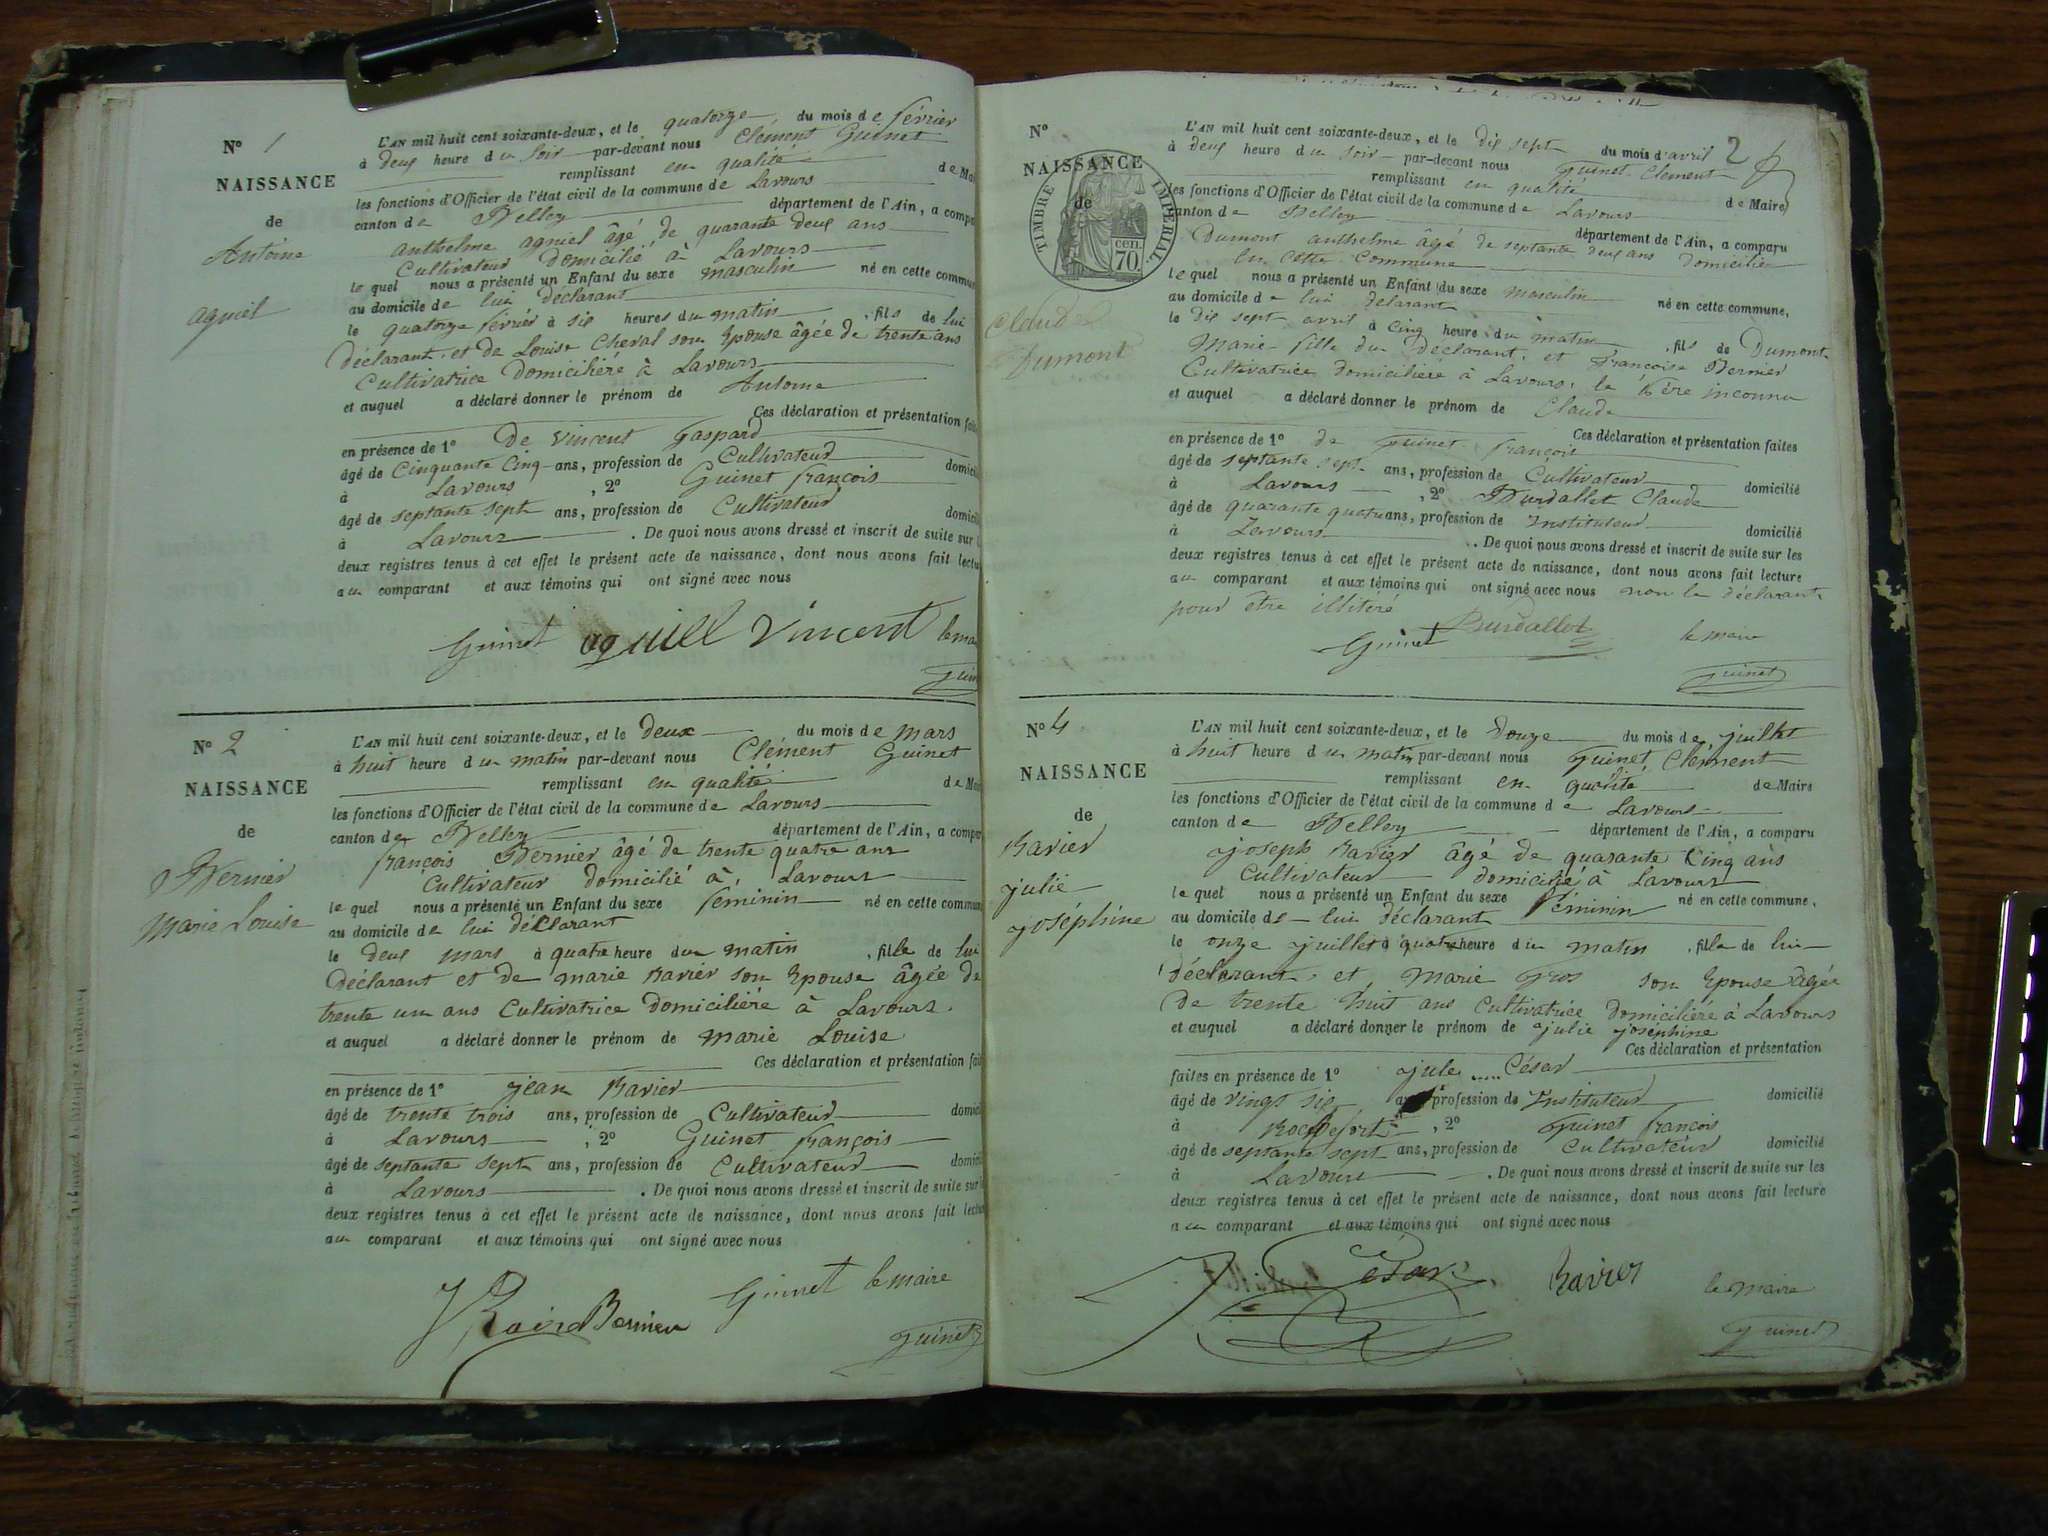 N° 1
NAISSANCE
de
Antoine
agniel
L'AN mil huit cent soixante-deux, et le quatorze du mois de février
à deux heure du soir par-devant nous Clément Guinet
remplissant en qualité de Ma
les fonctions d'Officier de l'état civil de la commune de Lavours
canton de Belley département de l'Ain, a compa
anthelme agniel âgé de quarante deux ans
Cultivateur domicilié à Lavours
lequel nous a présenté un Enfant du sexe masculin né en cette commun
au domicile de lui déclarant
le quatorze février à six heures du matin, fils de lui
déclarant et de Louise Cheval son Epouse âgée de trente ans
Cultivatrice domiciliéré à Lavours
et auquel a déclaré donner le prénom de Antoine
Ces déclaration et présentation fait
en présence de 1° De Vincent Gaspard
âgé de Cinquante Cinq ans, profession de Cultivateur domicili
à Lavours, 2° Guinet françois
âgé de septante sept ans, profession de Cultivateur domicili
à Lavours. De quoi nous avons dressé et inscrit de suite sur l
deux registres tenus à cet effet le présent acte de naissance, dont nous avons fait lectu
au comparant et aux témoins qui ont signé avec nous
Guinet agniel Vincent le ma
Guin
N° 2
NAISSANCE
de
Bernier
Marie Louise
L'AN mil huit cent soixante-deux, et le Deux du mois de mars
à huit heure du matin par-devant nous Clément Guinet
remplissant en qualité de Mai
les fonctions d'Officier de l'état civil de la commune de Lavours
canton de Belley département de l'Ain, a compar
françois Bernier âgé de trente quatre ans
Cultivateur domicilié à Lavours
lequel nous a présenté un Enfant du sexe féminin né en cette commun
au domicile de lui déclarant
le deux mars à quatre heure du matin, fille de lui
Déclarant et de marie Ravier son Epouse âgée de
trente un ans Cultivatrice domiciliére à Lavours.
et auquel a déclaré donner le prénom de marie Louise
Ces déclaration et présentation fait
en présence de 1° jean Ravier
âgé de trente trois ans, profession de Cultivateur domici
à Lavours, 2° Guinet françois
âgé de septante sept ans, profession de Cultivateur domici
à Lavours. De quoi nous avons dressé et inscrit de suite sur
deux registres tenus à cet effet le présent acte de naissance, dont nous avons fait lectu
au comparant et aux témoins qui ont signé avec nous
Bernier Guinet le maire
Guinet
2
N°
NAISSANCE
de
TIMBRE IMPERIAL
70 cen.
Claude
Dumont
L'AN mil huit cent soixante-deux, et le dix sept du mois d'avril
à deux heure du soir par-devant nous Guinet Clément
remplissant en qualité de Maire
les fonctions d'Officier de l'état civil de la commune de Lavours
canton de Belley département de l'Ain, a comparu
Dumont anthelme âgé de septante deux ans domicilié
en cette Commune
lequel nous a présenté un Enfant du sexe masculin né en cette commune,
au domicile de lui delarant
le dix sept avril à cinq heure du matin, fils de Dumont
Marie fille du déclarant et françoise Bernier
Cultivatrice domiciliére à Lavours, le Père inconnu
et auquel a déclaré donner le prénom de Claude
Ces déclaration et présentation faites
en présence de 1° de Guinet françois
âgé de septante sept ans, profession de Cultivateur domicilié
à Lavours, 2° Burdallet Claude
âgé de quarante quatre ans, profession de Instituteur domicilié
à Lavours. De quoi nous avons dressé et inscrit de suite sur les
deux registres tenus à cet effet le présent acte de naissance, dont nous avons fait lecture
au comparant et aux témoins qui ont signé avec nous non le déclarant
pour être illitéré
Guinet Burdallet le maire
Guinet
N° 4
NAISSANCE
de
Ravier
julie
joséphine
L'AN mil huit cent soixante-deux, et le Douze du mois de juillet
à huit heure du matin par-devant nous Guinet Clément
remplissant en qualité de Maire
les fonctions d'Officier de l'état civil de la commune de Lavours
canton de Belley département de l'Ain, a comparu
joseph Ravier âgé de quarante Cinq ans
Cultivateur domicilié à Lavours
lequel nous a présenté un Enfant du sexe féminin né en cette commune,
au domicile de lui déclarant
le onze juillet à quatre heure du matin, fille de lui
déclarant et Marie Gros son Epouse âgée
De trente huit ans Cultivatrice domiciliére à Lavours
et auquel a déclaré donner le prénom de julie joséphine
Ces déclaration et présentation
faites en présence de 1° jule ..... César
âgé de vingt six ans profession de Instituteur domicilié
à Rochefort, 2° Guinet françois
âgé de septante sept ans, profession de Cultivateur domicilié
à Lavours. De quoi nous avons dressé et inscrit de suite sur les
deux registres tenus à cet effet le présent acte de naissance, dont nous avons fait lecture
au comparant et aux témoins qui ont signé avec nous
César Ravier le maire
Guinet